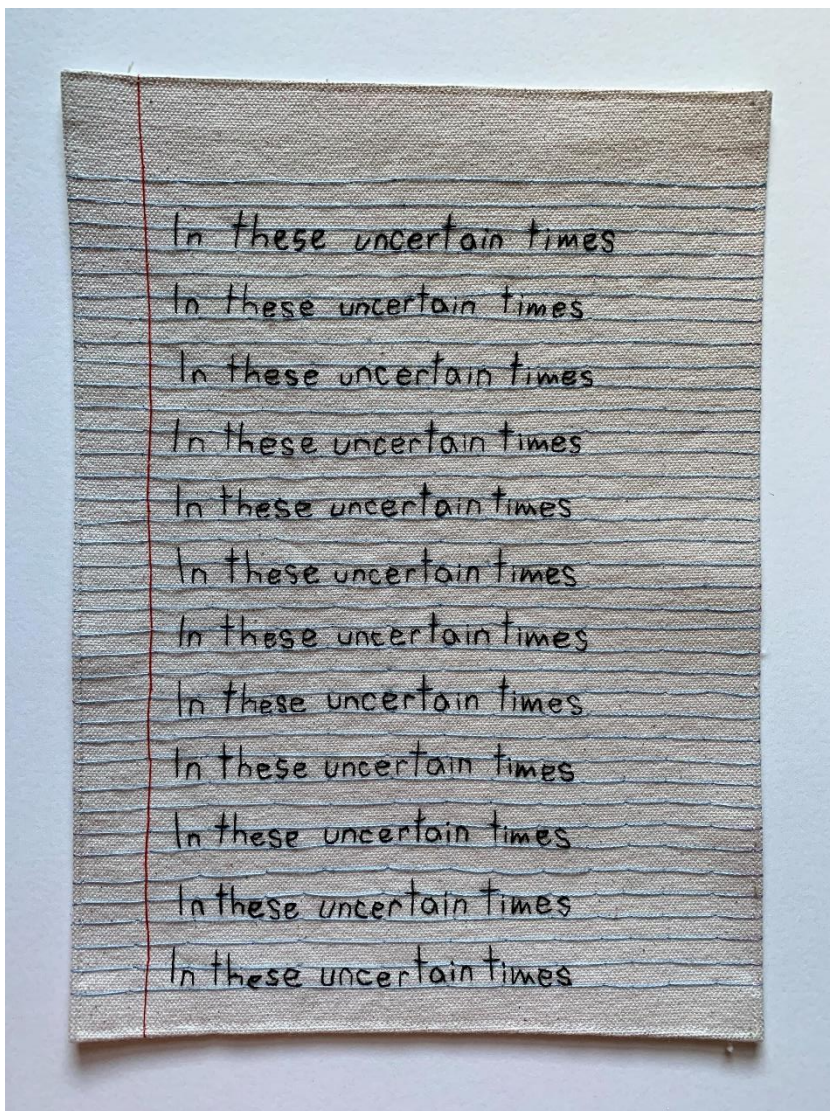 In these uncertain times
In these uncertain times
In these uncertain times
In these uncertain times
In these uncertain times
In these uncertain times
In these uncertain times
In these uncertain times
In these uncertain times
In these uncertain times
In these uncertain times
In these uncertain times